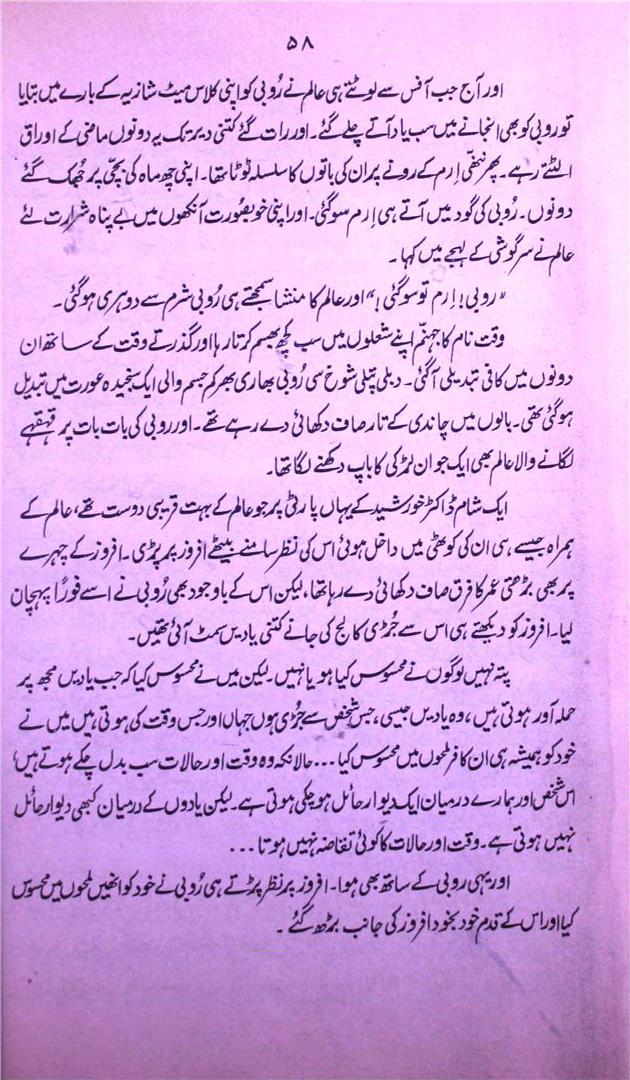 ۵۸
اور آج جب آفس سے لوٹتے ہی عالم نے رُوبی کو اپنی کلاس میٹ شازیہ کے بارے میں بتایا
تو روبی کو بھی انجانے میں سب یاد آتے چلے گئے۔ اور رات گئے کتنی دیر تک یہ دونوں ماضی کے اوراق
الٹتے رہے۔ پھر ننھّی اِرم کے رونے پر ان کی باتوں کا سلسلہ ٹوٹا تھا۔ اپنی چھ ماہ کی بچّی پر جُھک گئے
دونوں۔ رُوبی کی گود میں آتے ہی اِرم سو گئی۔ اور اپنی خوبصُورت آنکھوں میں بے پناہ شرارت لئے
عالم نے سرگوشی کے لہجے میں کہا۔
”روبی! اِرم تو سو گئی!“ اور عالم کا منشا سمجھتے ہی رُوبی شرم سے دوہری ہو گئی۔
وقت نام کا جہنّم اپنے شعلوں میں سب کچھ بھسم کرتا رہا اور گذرتے وقت کے ساتھ ان
دونوں میں کافی تبدیلی آگئی۔ دبلی پتلی شوخ سی رُوبی بھاری بھرکم جسم والی ایک سنجیدہ عورت میں تبدیل
ہو گئی تھی۔ بالوں میں چاندی کے تار صاف دکھائی دے رہے تھے۔ اور روبی کی بات بات پر قہقہے
لگانے والا عالم بھی ایک جوان لڑکی کا باپ دکھنے لگا تھا۔
ایک شام ڈاکٹر خورشید کے یہاں پارٹی پر جو عالم کے بہت قریبی دوست تھے، عالم کے
ہمراہ جیسے ہی ان کی کوٹھی میں داخل ہوئی اس کی نظر سامنے بیٹھے افروز پر پڑی۔ افروز کے چہرے
پر بھی بڑھتی عمر کا فرق صاف دکھائی دے رہا تھا، لیکن اس کے باوجود بھی رُوبی نے اسے فوراً پہچان
لیا۔ افروز کو دیکھتے ہی اس سے جُڑی کالج کی جانے کتنی یادیں سمٹ آئی تھیں۔
پتہ نہیں لوگوں نے محسوس کیا ہو یا نہیں۔ لیکن میں نے محسوس کیا کہ جب یادیں مجھ پر
حملہ آور ہوتی ہیں، وہ یادیں جیسی، جس شخص سے جُڑی ہوں جہاں اور جس وقت کی ہوتی ہیں میں نے
خود کو ہمیشہ ہی ان کافر لمحوں میں محسوس کیا... حالانکہ وہ وقت اور حالات سب بدل چکے ہوتے ہیں،
اس شخص اور ہمارے درمیان ایک دیوار حائل ہو چکی ہوتی ہے۔ لیکن یادوں کے درمیان کبھی دیوار حائل
نہیں ہوتی ہے۔ وقت اور حالات کا کوئی تقاضہ نہیں ہوتا...
اور یہی روبی کے ساتھ بھی ہوا۔ افروز پر نظر پڑتے ہی رُوبی نے خود کو انھیں لمحوں میں محسوس
کیا اور اس کے قدم خود بخود افروز کی جانب بڑھ گئے۔